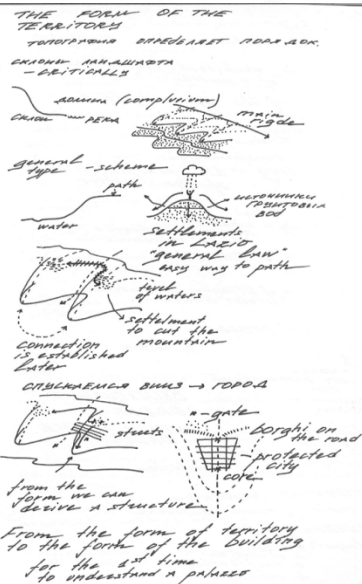 THE FORM OF THE
TERRITORY
ТОПОГРАФИЯ ОПРЕДЕЛЯЕТ ПОРЯДОК.
СКЛОНЫ ЛАНДШАФТА
- CRITICALLY
ДОЛИНА (compluvium)
СКЛОН
РЕКА
main
rigde
general
type - scheme
path
water
ИСТОЧНИКИ
ГРУНТОВЫХ
ВОД
settlements
in LAZIO
"general law"
easy way to path
level
of waters
settelment
to cut the
mountain
connection
is established
later
СПУСКАЕМСЯ ВНИЗ → ГОРОД
streets
- gate
borghi on
the road
protected
city
core
from the
form we can
derive a structure
From the form of territory
to the form of the building
for the 1st time
to understand a palazzo